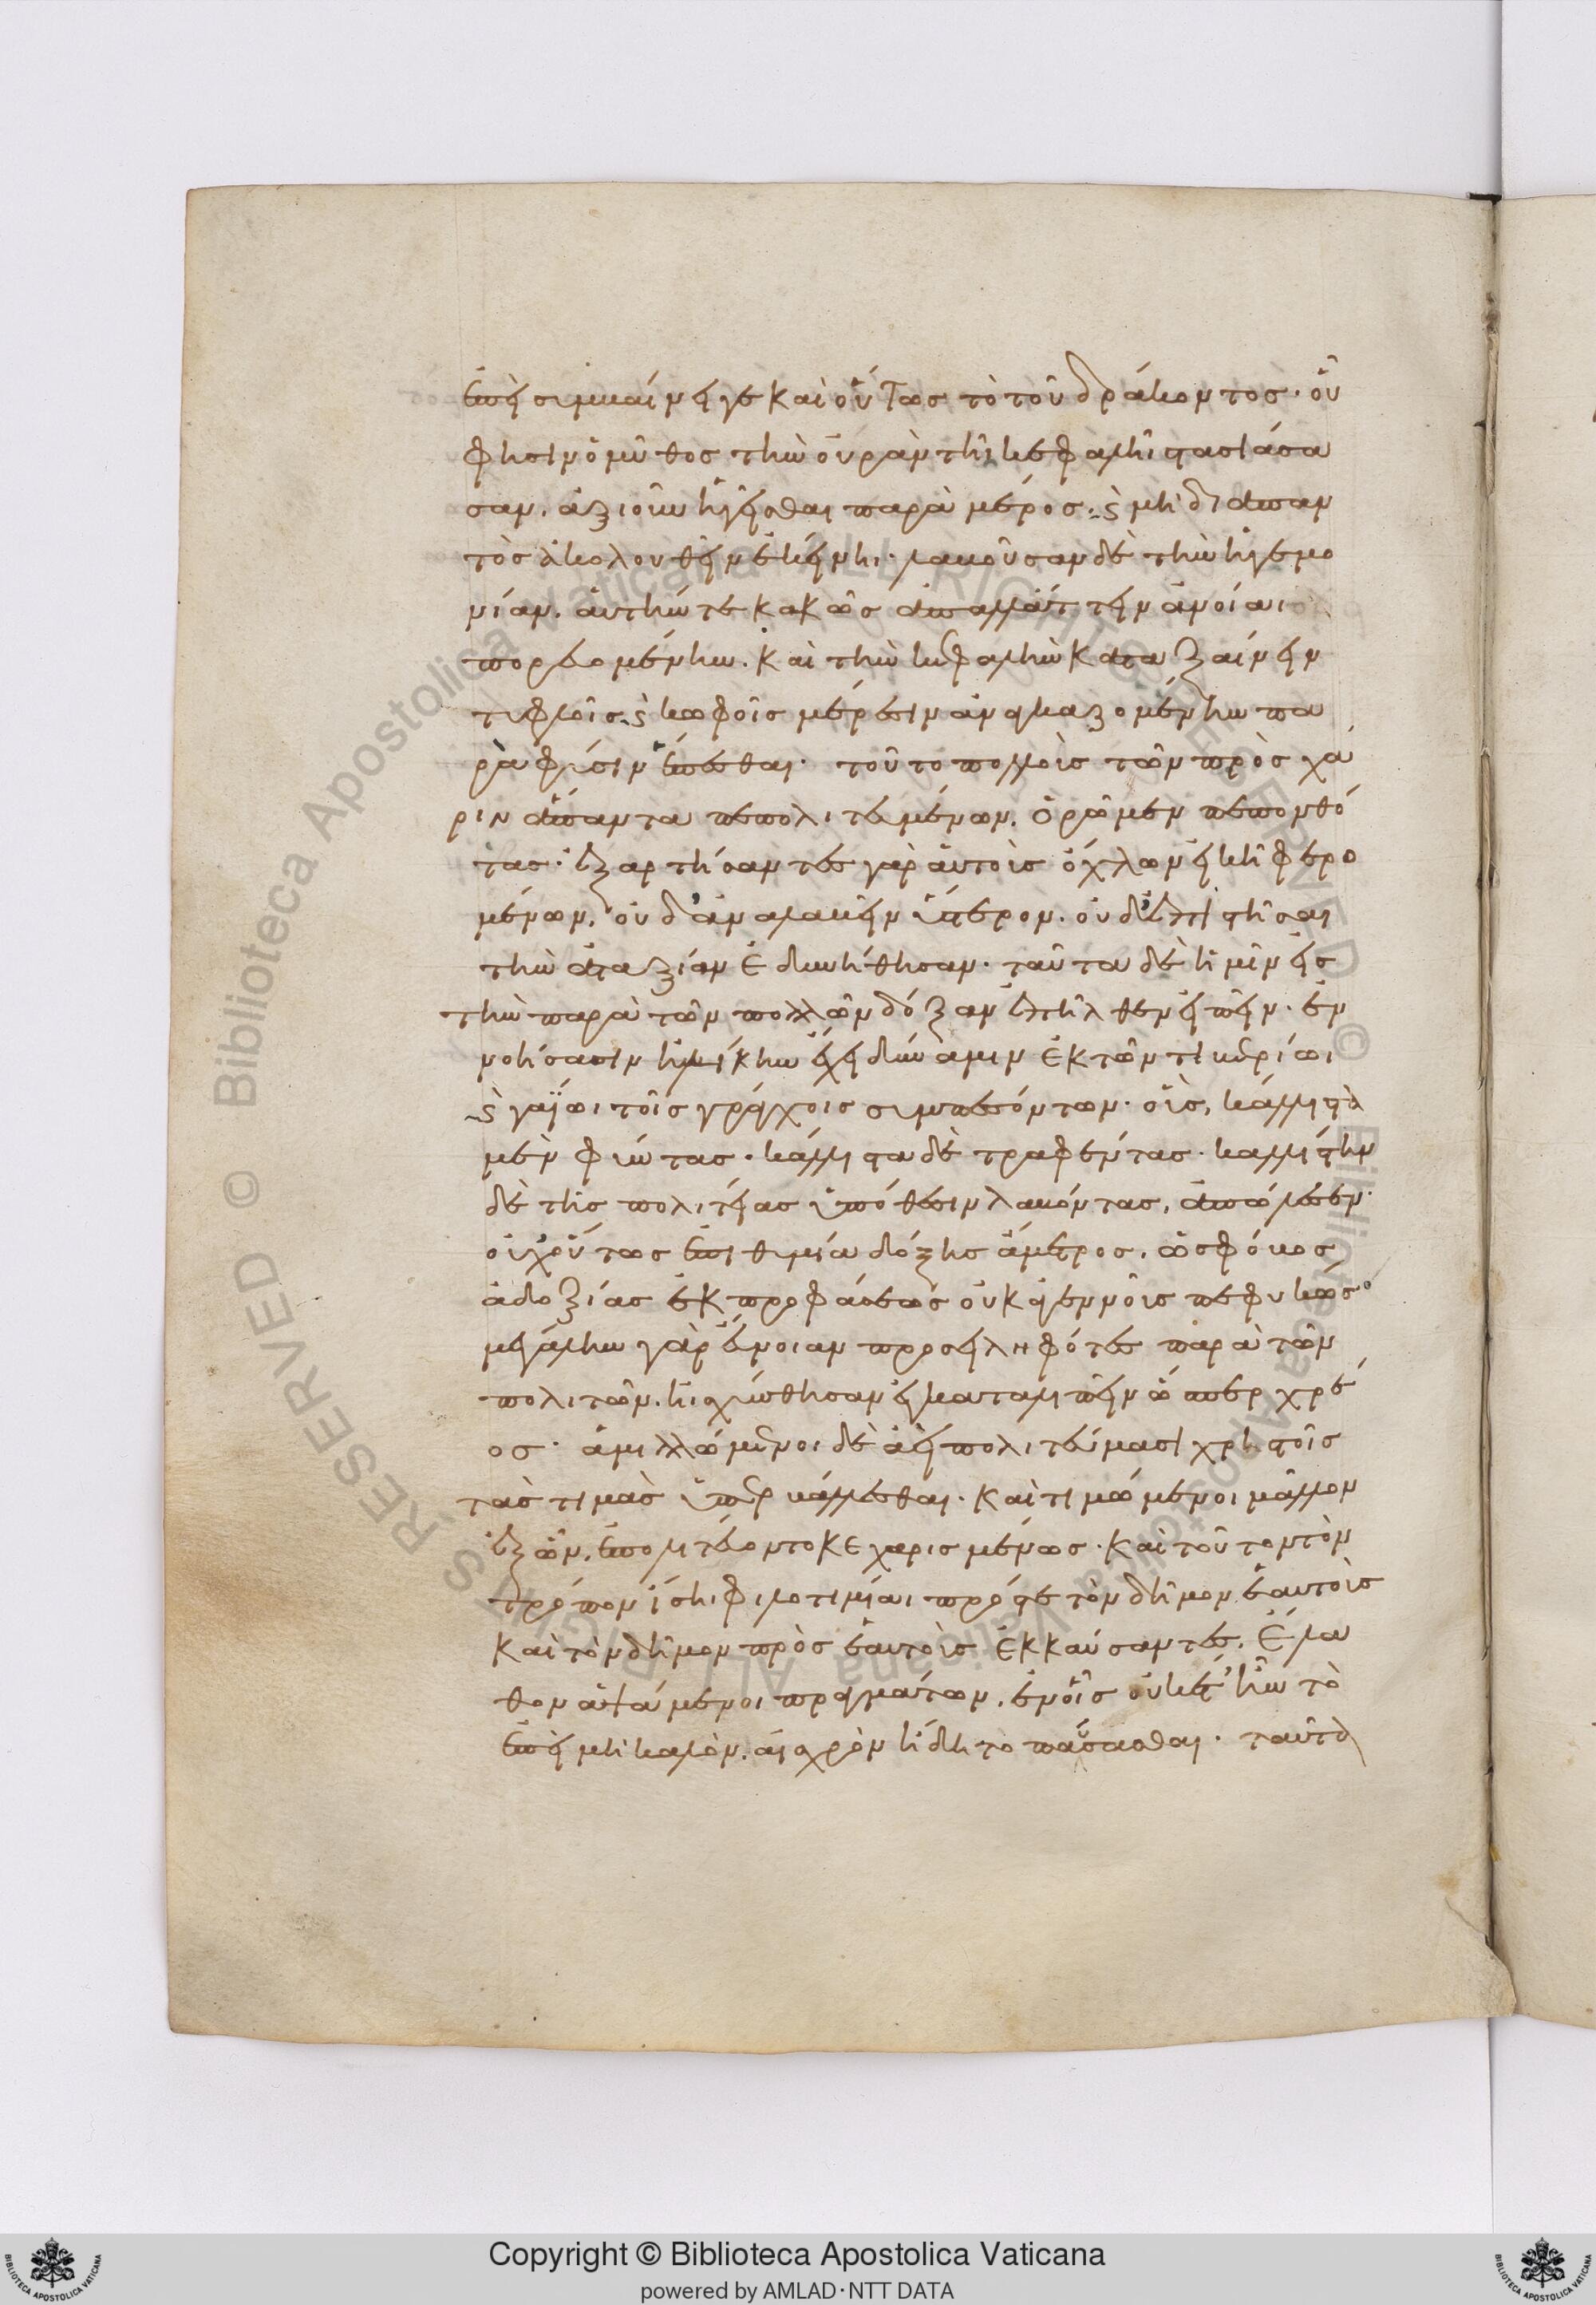 ἐπεὶ συμβαίνει γε καὶ οὕτως τὸ τοῦ δράκοντος· οὗ
φησιν ὁ μῦθος τὴν οὐρὰν τῆι κεφαλῆι στασιάσα
σαν. ἀξιοῦν ἡγεῖσθαι παρὰ μέρος. ϗ μὴ διαπαν
τὸς ἀκολουθεῖν ἐκείνηι. λαβοῦσαν δὲ τὴν ἡγεμο
νίαν. αὐτήν τε κακῶς ἀπαλλάττειν ἀνοίαι
πορευομένην. καὶ τὴν κεφαλὴν καταξαίνειν
τυφλοῖς ϗ κωφοῖς μέρεσιν ἀναγκαζομένην πα
ρὰ φύσιν ἕπεσθαι. τοῦτο πολλοὺς τῶν πρὸς χά
ριν ἅπαντα πεπολιτευμένων. ὁρῶμεν πεπονθό
τας. ἐξαρτήσαντες γὰρ αὑτοὺς ὄχλων εἰκῆ φερο
μένων. οὐδ' ἀναλαβεῖν ὕστερον. οὐδ' ἐπιστῆσαι
τὴν ἀταξίαν ἐδυνήθησαν. ταῦτα δὲ ἡμῖν εἰς
τὴν παρὰ τῶν πολλῶν δόξαν ἐπῆλθεν εἰπεῖν. ἐν
νοήσασιν ἡλίκην ἔχει δύναμιν ἐκ τῶν τιβερίωι
ϗ γαΐωι τοῖς γράγχοις συμπεσόντων. οὓς, κάλλιστα
μὲν φύντας. κάλλιστα δὲ τραφέντας. καλλίστην
δὲ τῆς πολιτείας ὑπόθεσιν λαβόντας, ἀπώλεσεν.
οὐχ οὕτως ἐπιθυμία δόξης ἄμετρος. ὡς φόβος
ἀδοξίας ἐκ προφάσεως οὐκ ἀγεννοῦς πεφυκώς.
μεγάλην γὰρ εὔνοιαν προσειληφότες παρὰ τῶν
πολιτῶν. ἠισχύνθησαν ἐγκαταλιπεῖν ὥσπερ χρέ
ος. ἁμιλλώμενοι δὲ ἀεὶ πολιτεύμασι χρηστοῖς
τὰς τιμὰς ὑπερβάλλεσθαι. καὶ τιμώμενοι μᾶλλον
ἐξ ὧν. ἐπολιτεύοντο κεχαρισμένως. καὶ τοῦτον τὸν
τρόπον ἴσηι φιλοτιμίαι πρός τε τὸν δῆμον ἑαυτοὺς
καὶ τὸν δῆμον πρὸς ἑαυτοὺς ἐκκαύσαντες. ἔλα
θον ἁψάμενοι πραγμάτων. ἐν οἷς οὐκέτ' ἦν τὸ
ἐπεὶ μὴ καλὸν. αἰσχρὸν ἤδη τὸ παύσασθαι. ταῦτα